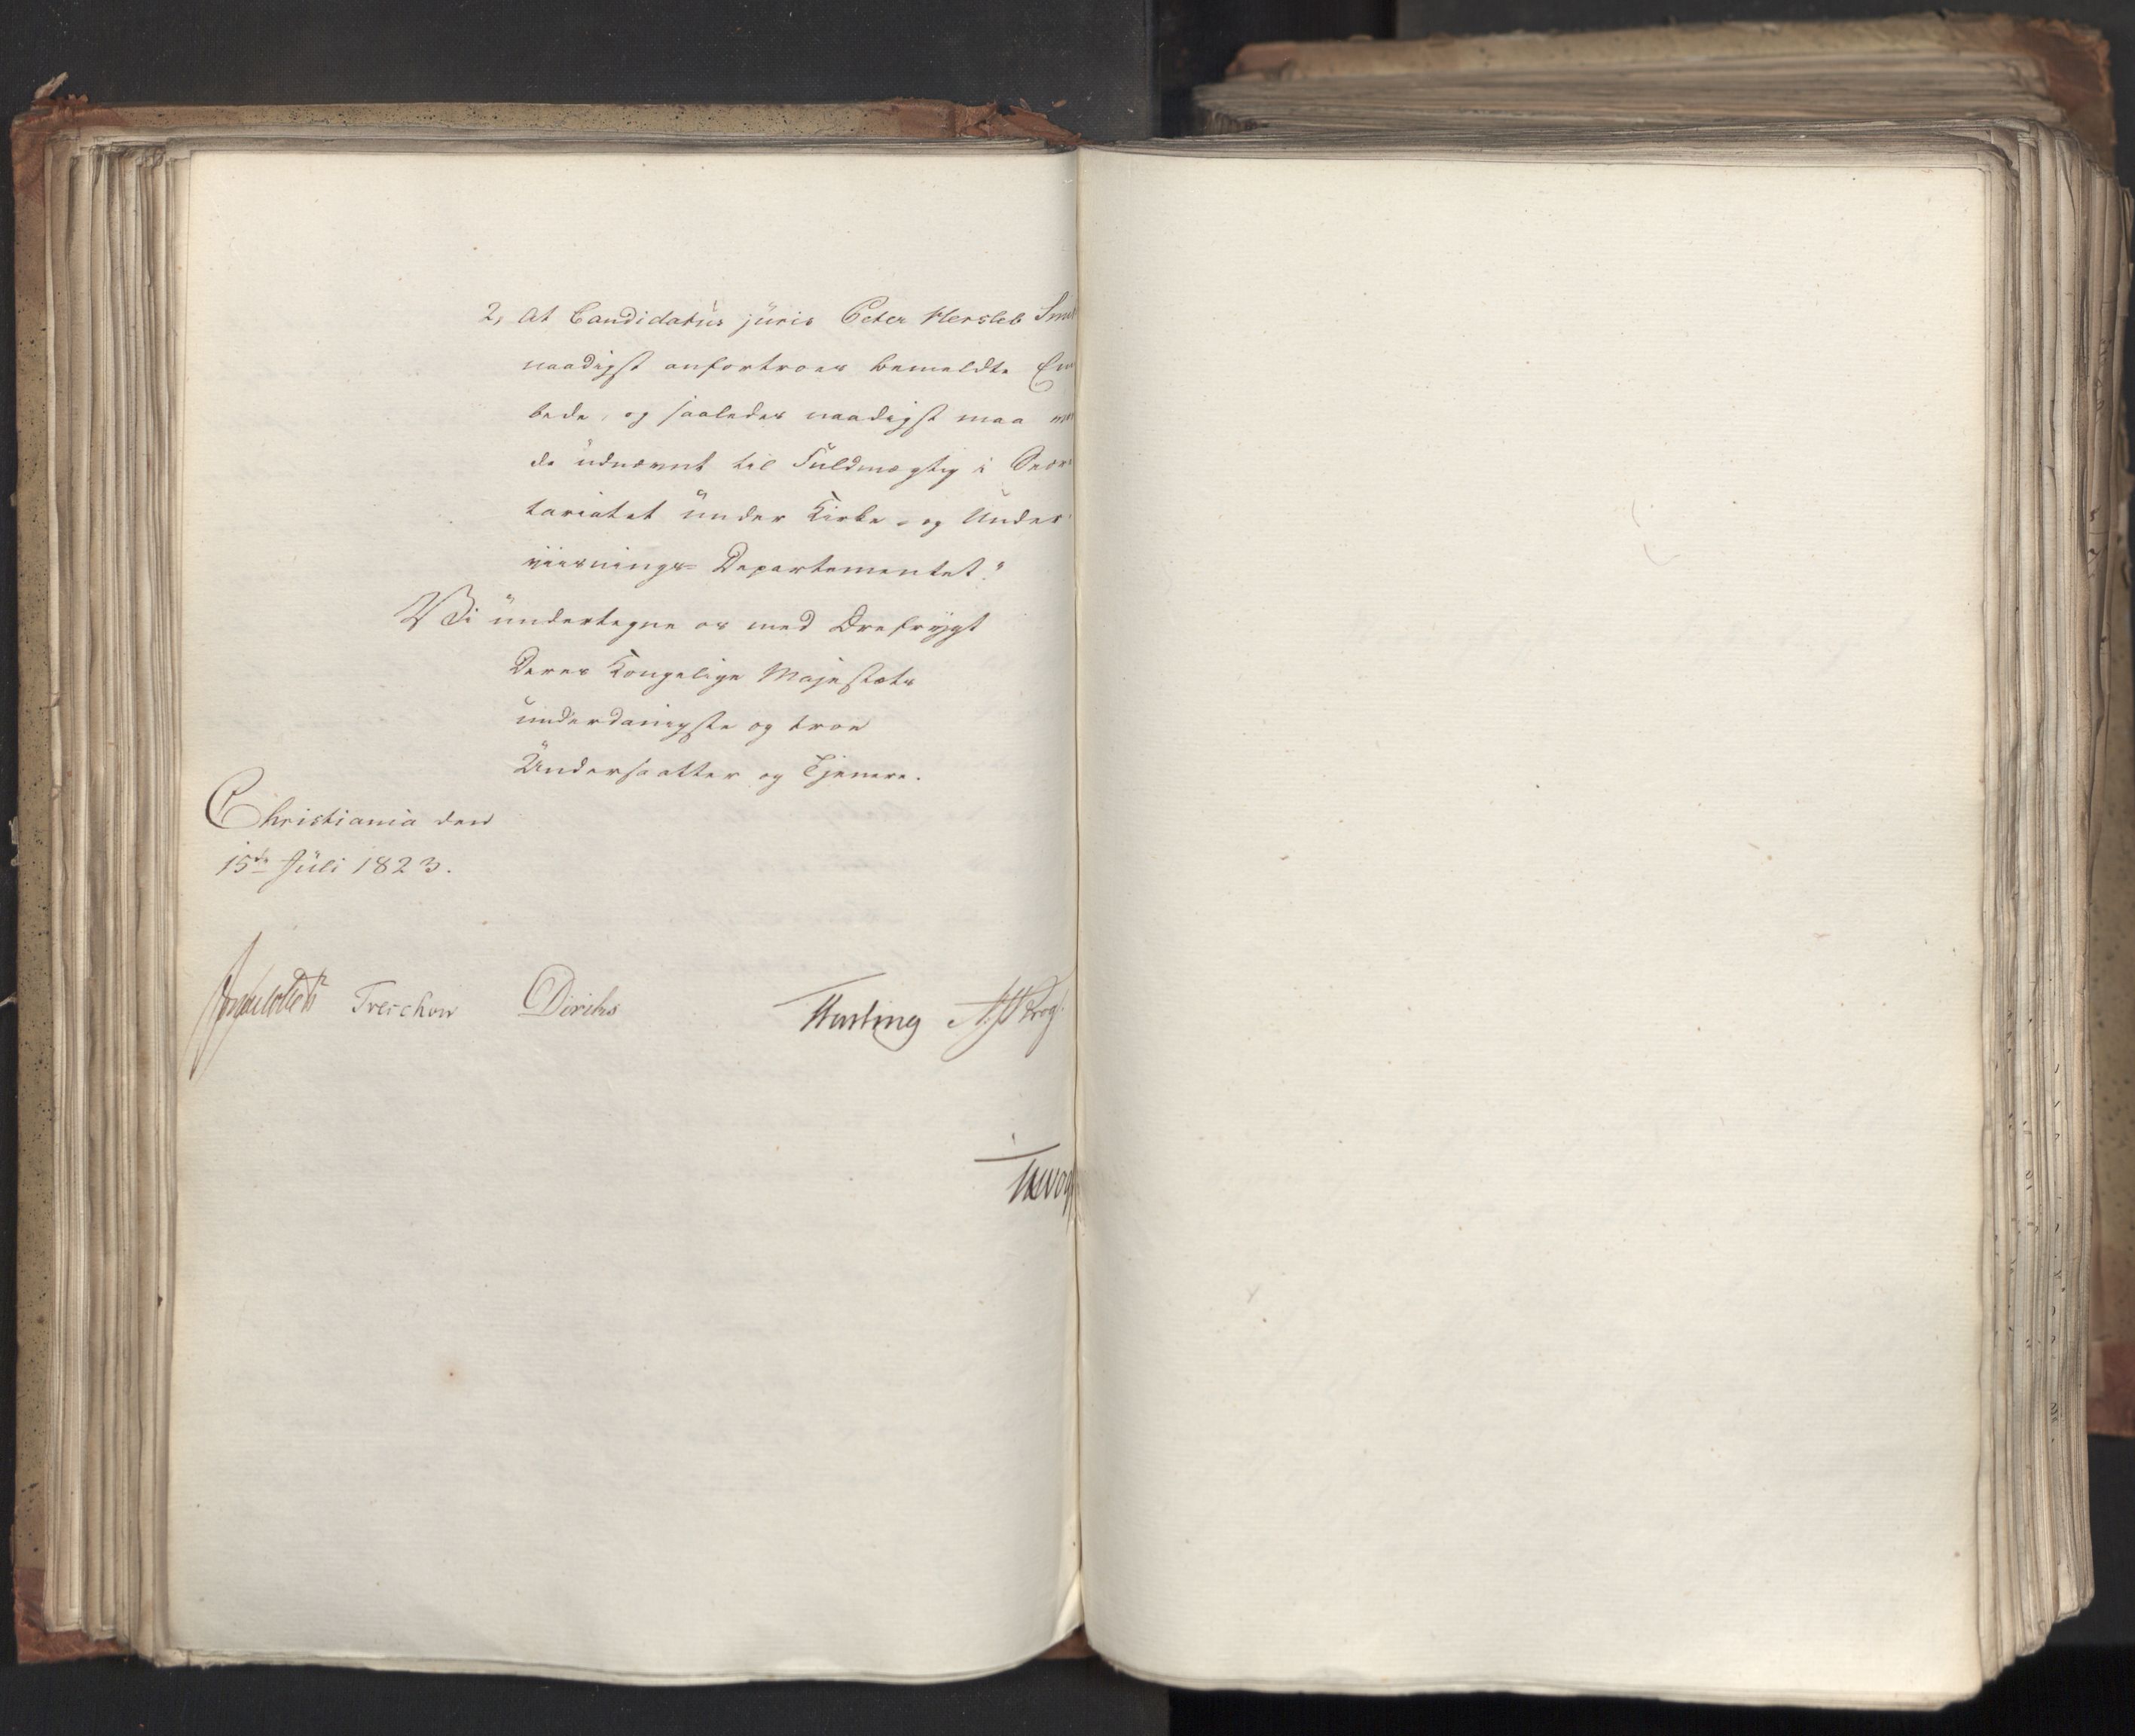 2, At Candidatus juris Peter Hersleb
naadigst anfortroes bemeldte Em
bede, og saaledes naadigst maa
de udnævnt til Fuldmægtig i Secre
tariatet under Kirke- og Under
viisnings= Departementet."
Vi undertegne os med Ærefrygt
Deres Kongelige Majestæts
underdanigste og troe
Undersaatter og Tjenere.
Christiania den
15de Juli 1823.
Treschow Diriks Hasting